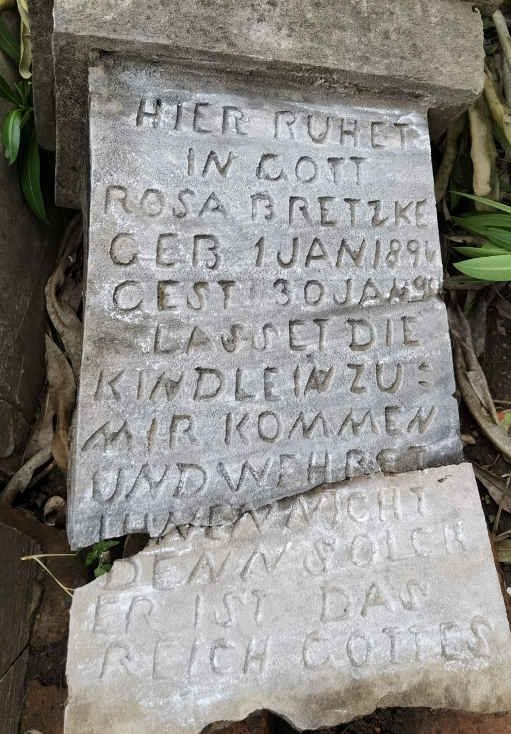 HIER RUHET
IN GOTT
ROSA BRETZKE
GEB 1 JAN 189
GEST 30 JAN
LASSET DIE
KINDLEIN ZU:
MIR KOMMEN
UND WEHRET
IHNEN NICHT
DENN SOLCH
ER IST DAS
REICH GOTTES